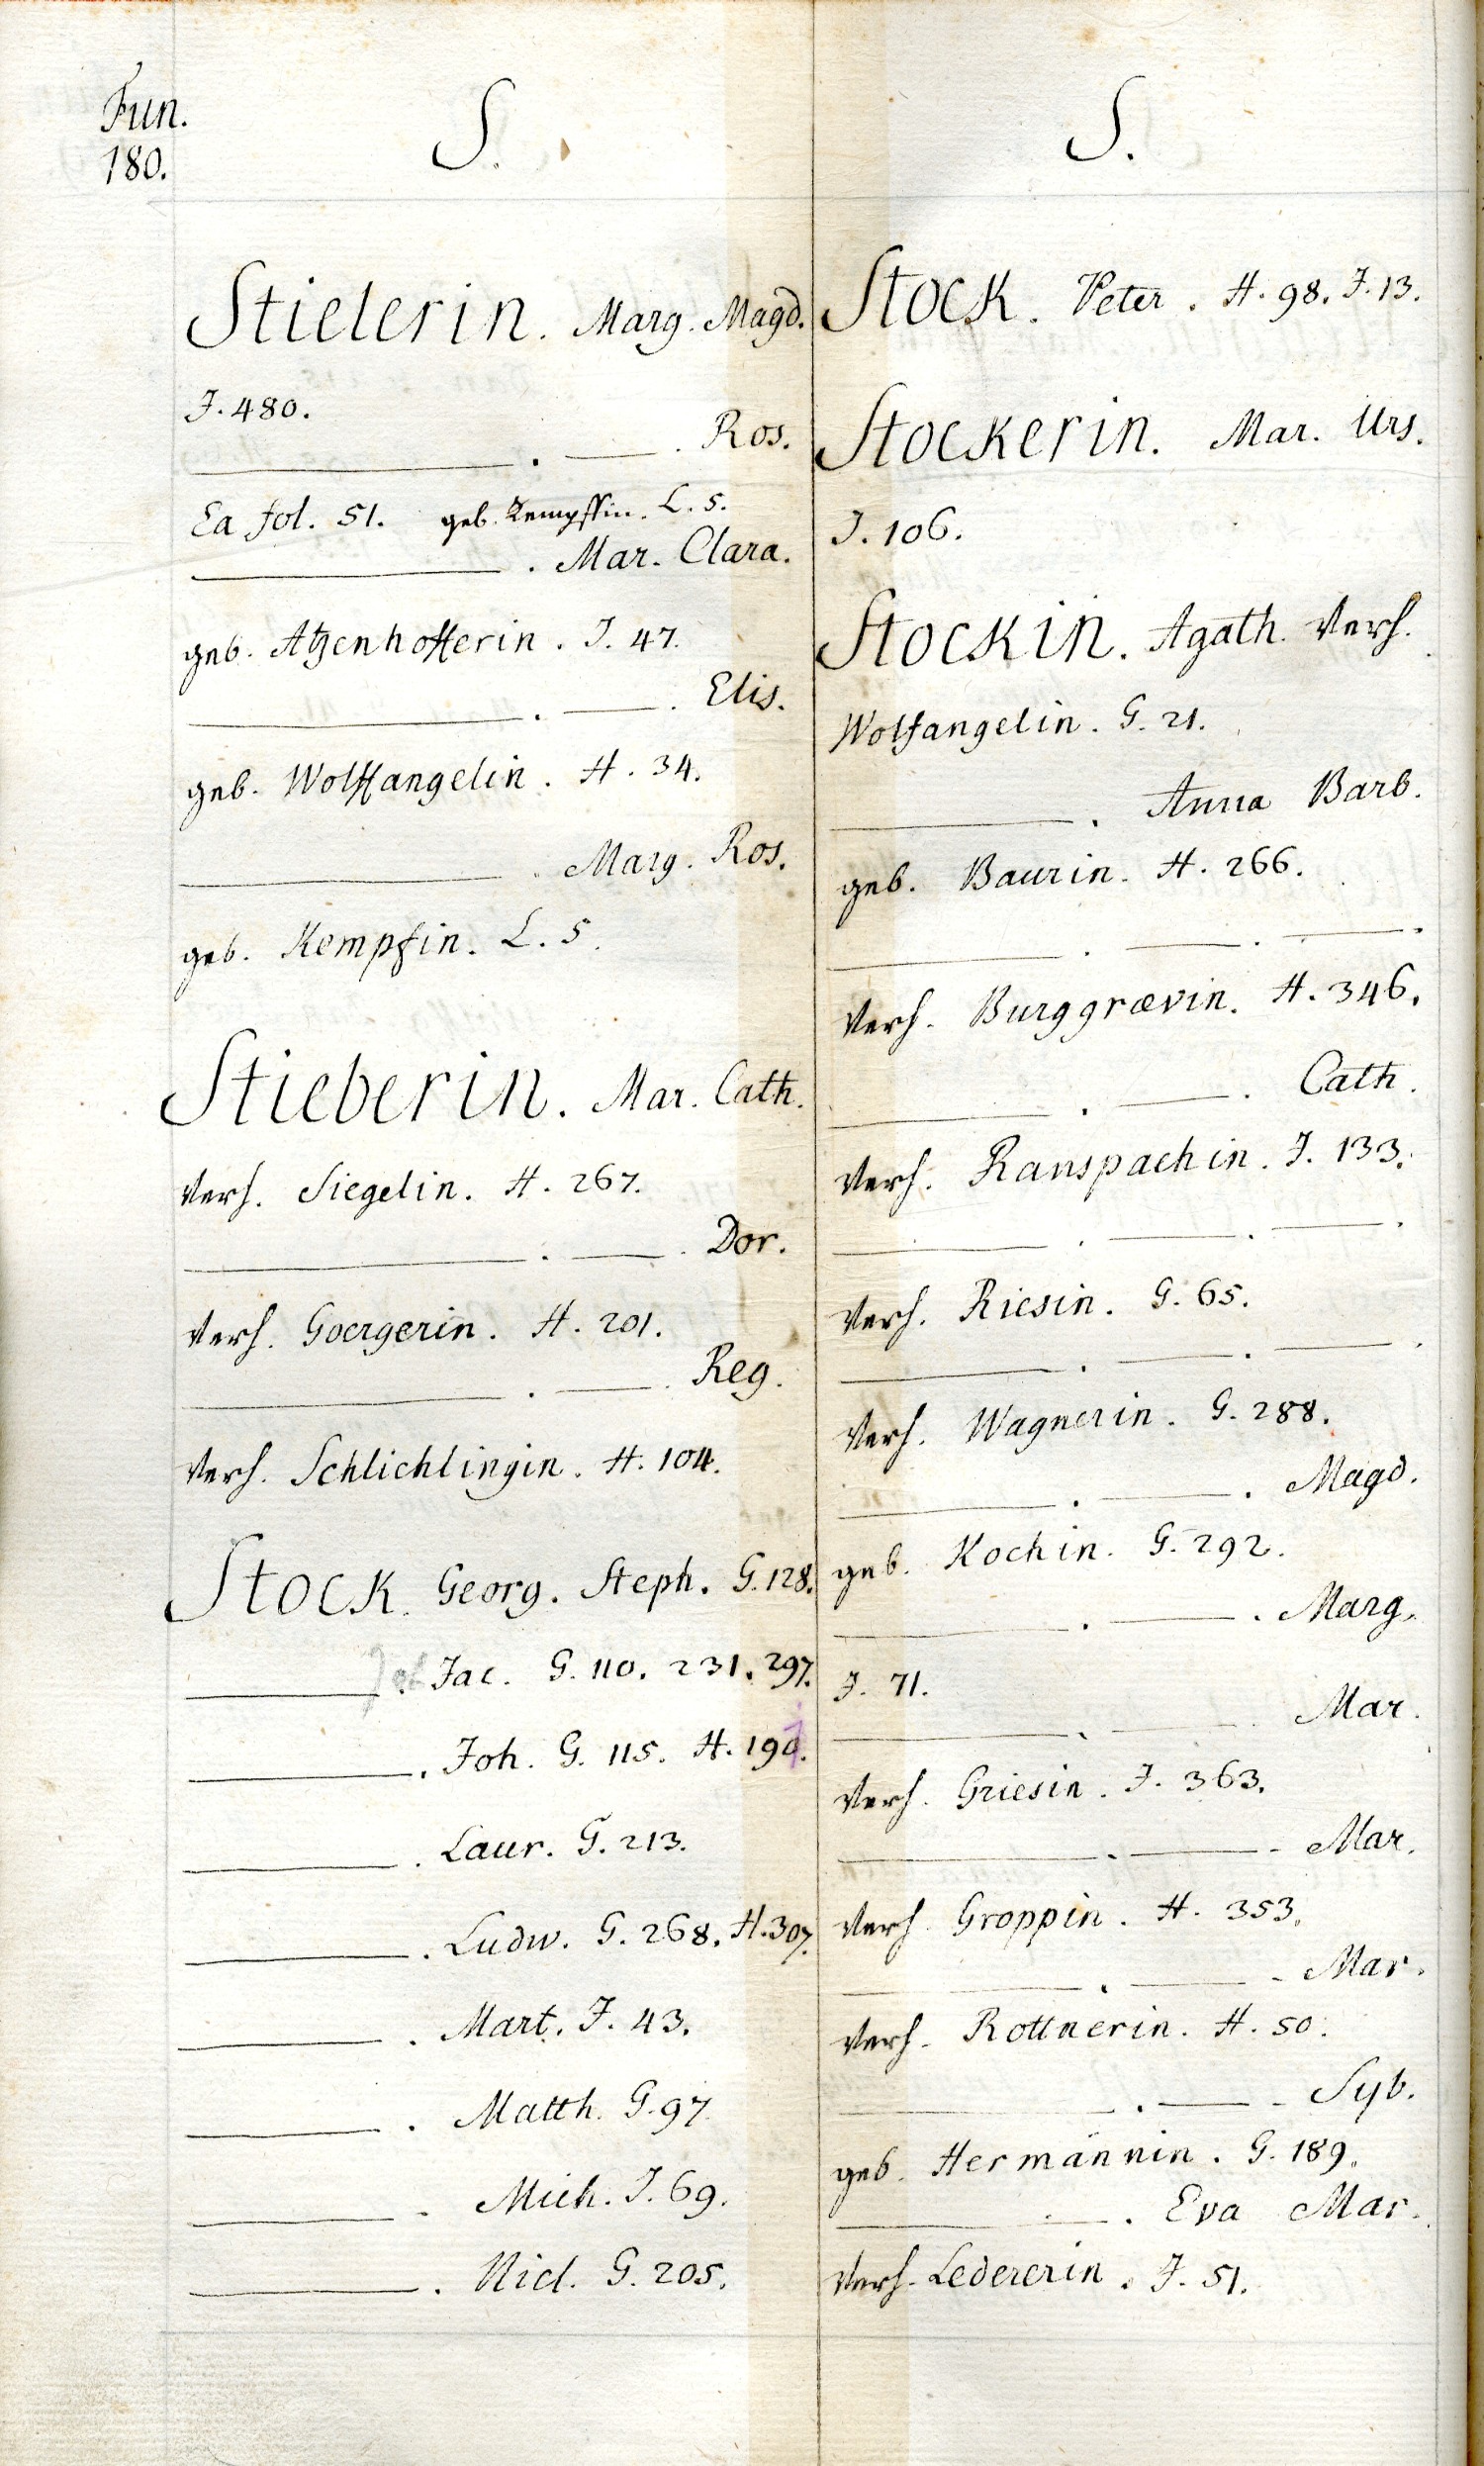 Fun.
180.
S.
Stielerin. Marg. Magd.
J. 480.
———. ——. Ros.
Ea fol. 51. geb. Kempffin. L. 5.
———. Mar. Clara.
geb. Atzenhofferin. J. 47.
———. ——. Elis.
geb. Wolffangelin. H. 34.
———. Marg. Ros.
geb. Kempfin. L. 5.
Stieberin. Mar. Cath.
Verh. Siegelin. H. 267.
———. ——. Dor.
Verh. Goergerin. H. 201.
———. ——. Reg.
Verh. Schlichlingin. H. 104.
Stock. Georg. Steph. G. 128.
———. Jac. G. 110. 231. 297.
———. Joh. G. 115. H.
———. Laur. G. 213.
———. Ludw. G. 268. H. 307.
———. Mart. J. 43.
———. Matth. G. 97
———. Mich. J. 69.
———. Nicl. G. 205.
S.
Stock. Peter. H. 98. J. 13.
Stockerin. Mar. Urs.
J. 106.
Stockin. Agath. Verh.
Wolfangelin. G. 21.
———. Anna Barb.
geb. Baurin. H. 266.
———. ——. ——.
Verh. Burggrævin. H. 346.
———. ——. Cath.
Verh. Ranspachin. J. 133.
———. ——. ——.
Verh. Riesin. G. 65.
———. ——. ——.
Verh. Wagnerin. G. 288.
———. ——. Magd.
geb. Kochin. G. 292.
———. ——. Marg.
J. 71.
———. ——. Mar.
Verh. Griesin. J. 363.
———. ——. Mar.
Verh. Groppin. H. 353.
———. ——. Mar.
Verh. Rottnerin. H. 50.
———. ——. Syb.
geb. Hermännin. G. 189.
———. Eva Mar.
Verh. Ledererin. J. 51.